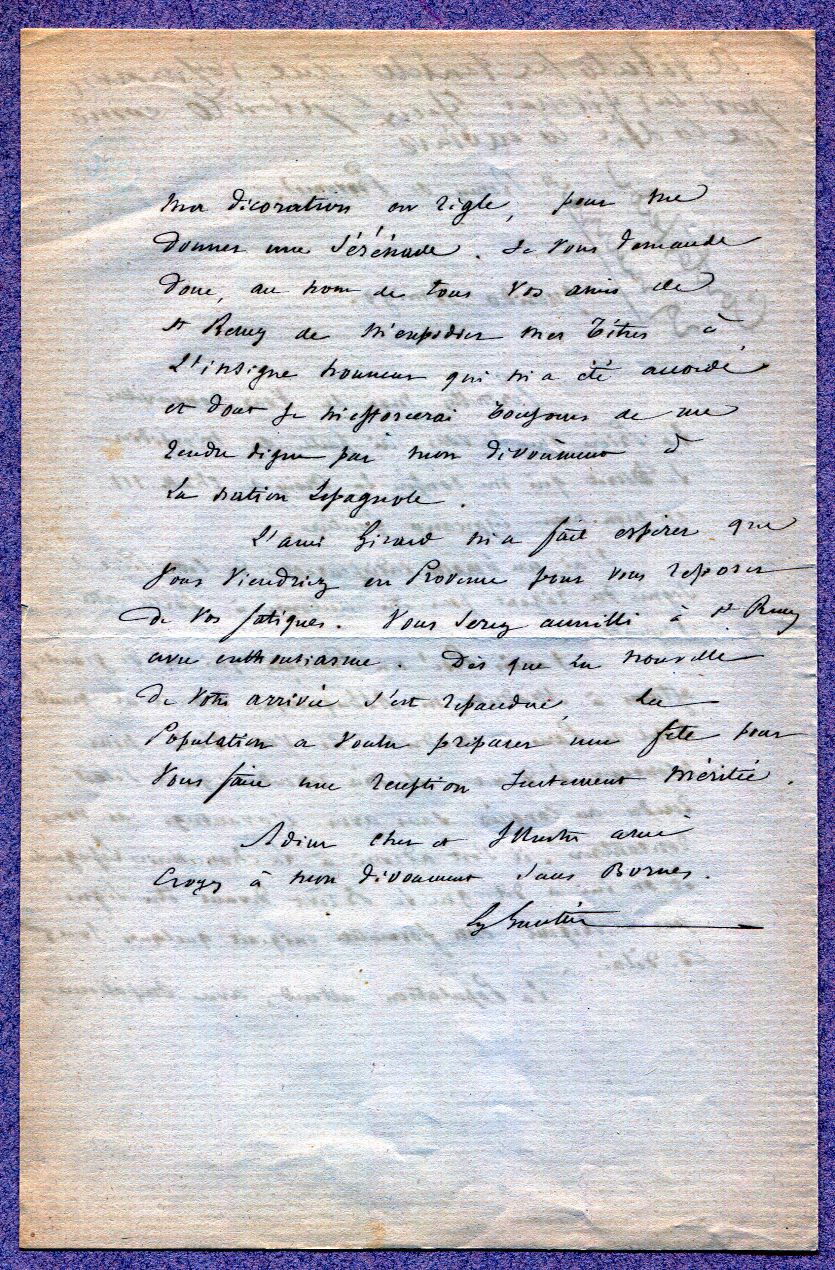 ma décoration en règle, pour me
donner une sérénade. Je vous demande
donc, au nom de tous vos amis de
St Remy de m'expédier mes titres à
l'insigne honneur qui m'a été accordé
et dont je m'efforcerai toujours de me
rendre digne par mon dévoûment à
la nation Espagnole.
L'ami Girard m'a fait espérer que
vous viendriez en Provence pour vous reposer
de vos fatigues. Vous serez accueilli à St Remy
avec enthousiasme. Dès que la nouvelle
de votre arrivée s'est répandue, la
Population a voulu préparer une fête pour
vous faire une réception justement méritée.
Adieu cher et Illustre ami
Croyez à mon dévoument sans Bornes.